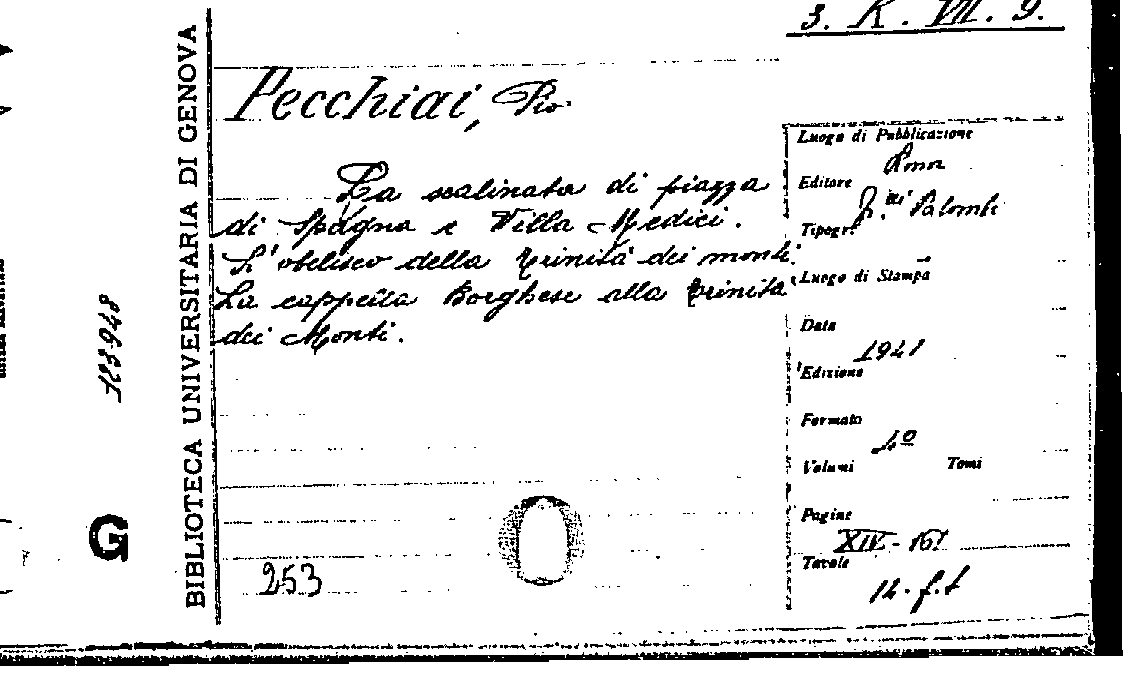 3. K. VII. 9.
Pecchiai, Pio
La scalinata di piazza
di Spagna e Villa Medici.
L'obelisco della Trinità dei monti.
La cappella Borghese alla Trinità
dei Monti.
253
BIBLIOTECA UNIVERSITARIA DI GENOVA
G
Luogo di Pubblicazione
Roma
Editore
F.lli Palombi
Tipogr.
Luogo di Stampa
Data
1941
Edizione
Formato
4º
Volumi Tomi
Pagine
XIV - 161
Tavole
12. f.t